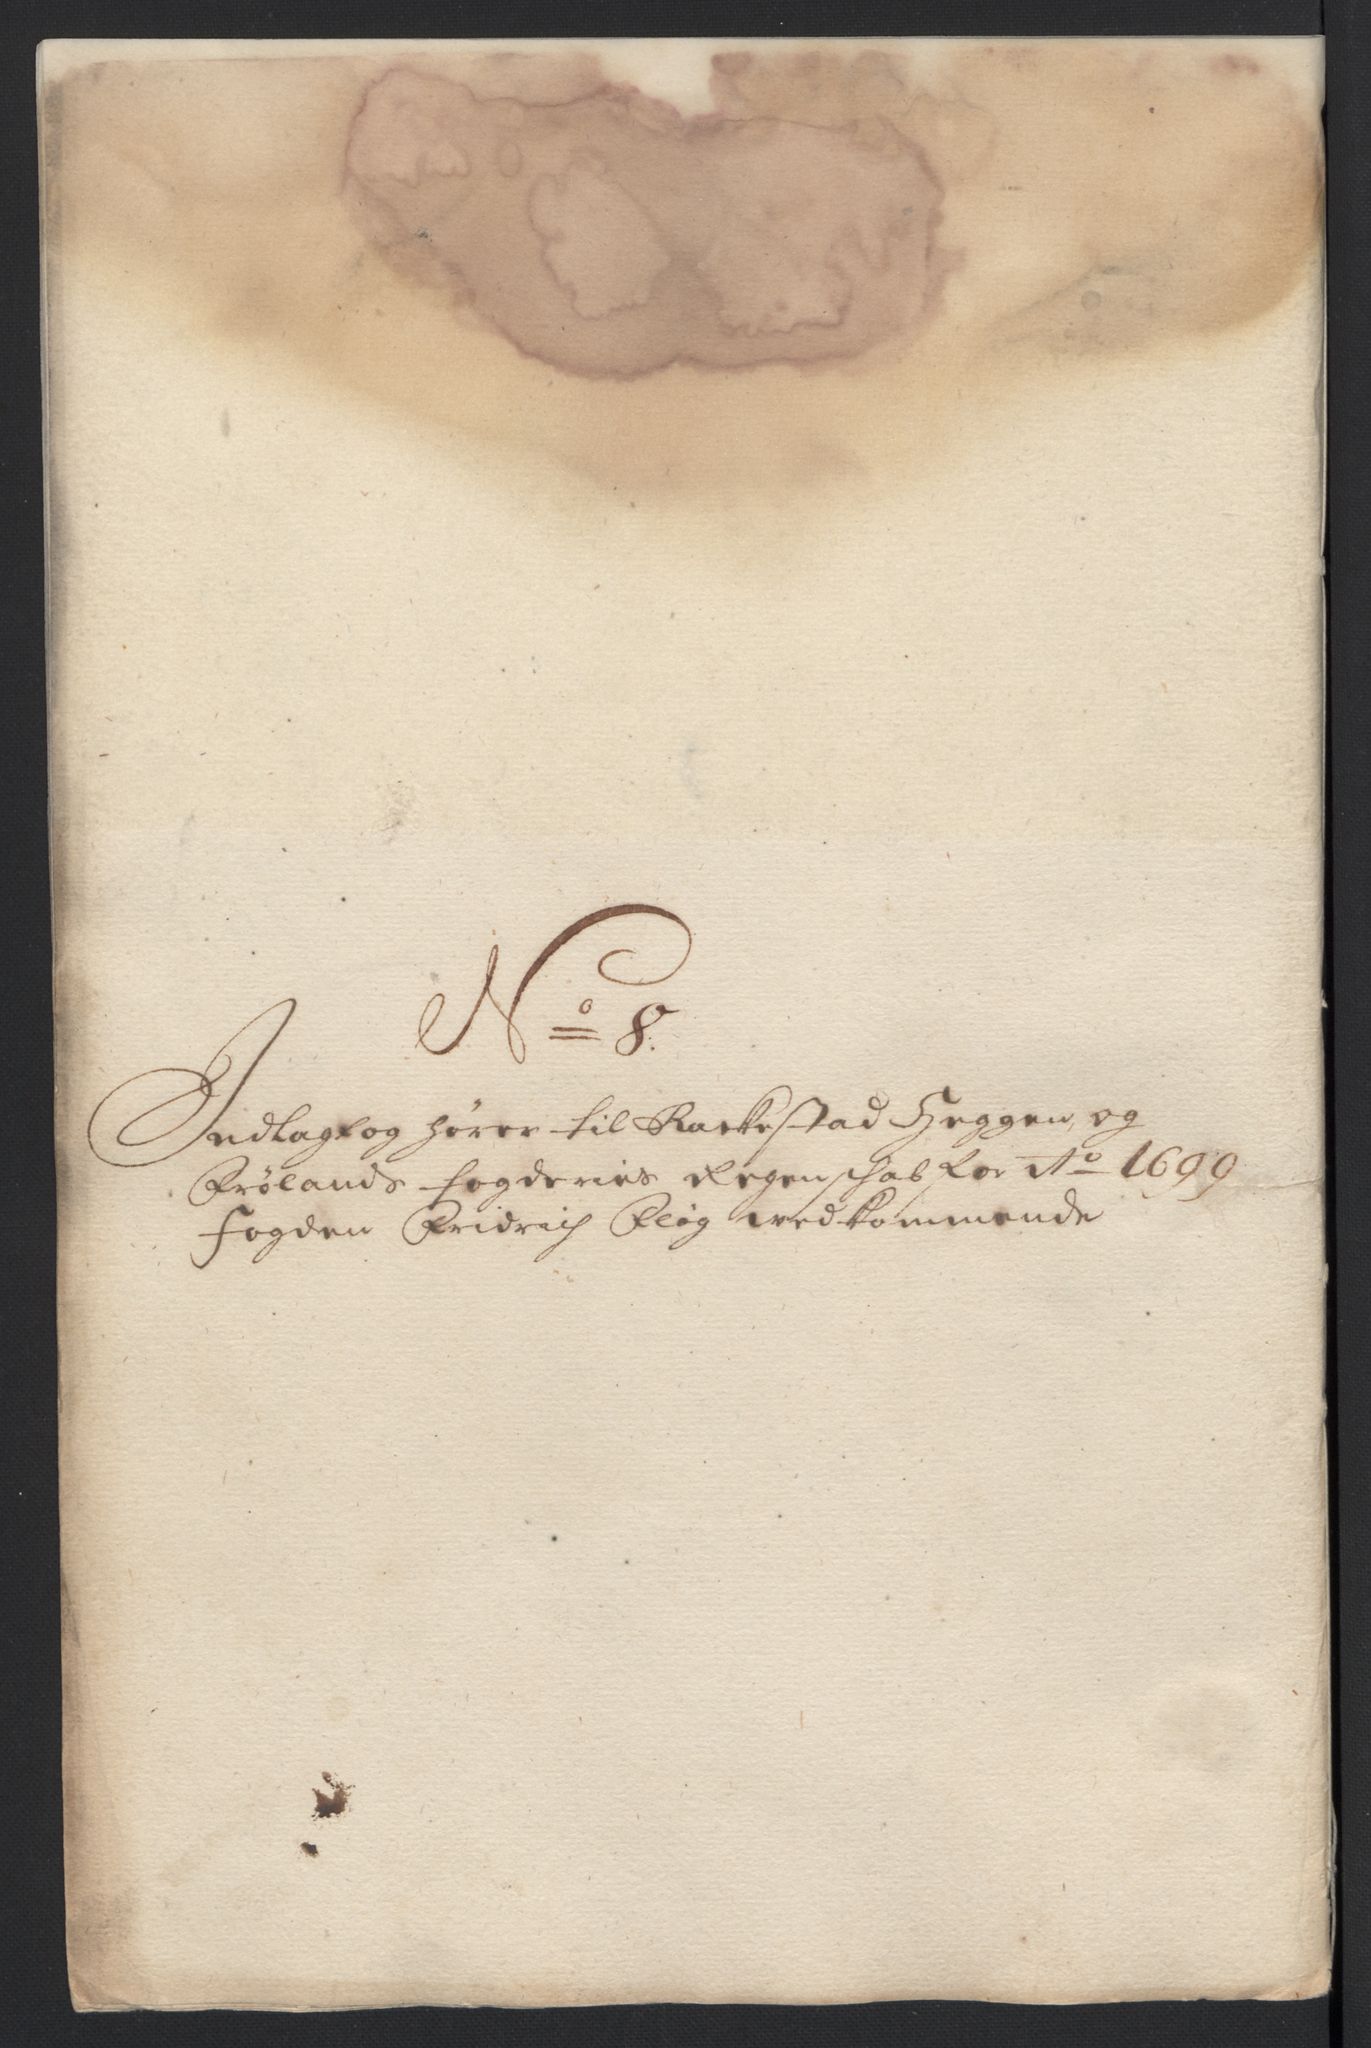 No 8.
Indlagt og hører til Rackestad Heggen, og
Frølands fogderies Regenschab for Ao 1699
fogden Fridrich Pløg vedkommende